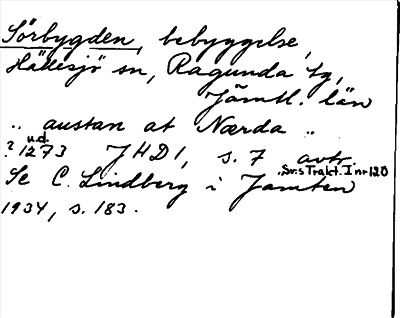 Sörbygden, bebyggelse,
Hällesjö sn, Ragunda tg,
Jämtl. län
.. austan at Nærda ..
u.d.
? 1273 JHD1, s. 7 avtr.
Sv:s Trakt. I nr 120
Se C. Lindberg i Jämten
1934, s. 183.